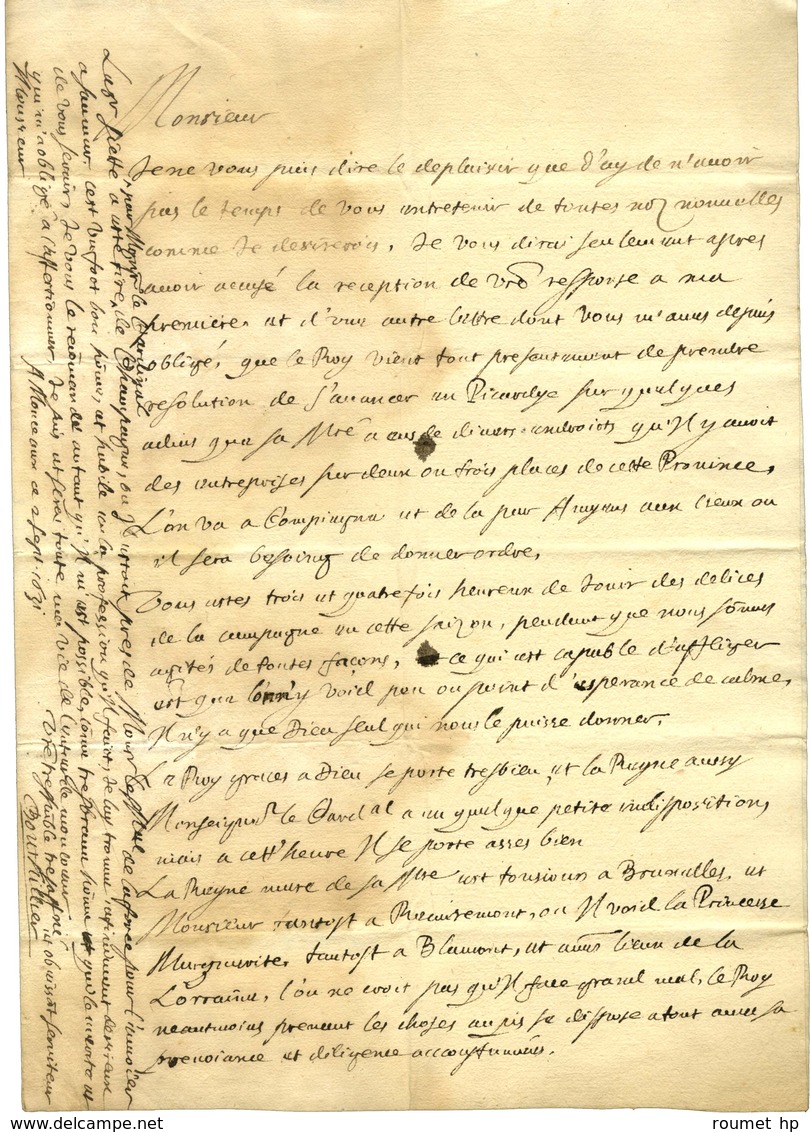 Monsieur
Je ne vous puis dire le deplaisir que J'ay de n'avoir
pas le temps de vous entretenir de toutes noz nouvelles
comme Je desirerois, Je vous dirai seulement apres
avoir accusé la reception de vrê response a ma
premiere, et d'une autre lettre dont vous m'aves depuis
obligé, que le Roy vient tout presentement de prendre
resolution de s'avancer en Picardye sur quelques
advis que sa Mté a eus de divers endroicts qu'Il y avoit
des entreprises sur deux ou trois places de cette Province,
L'on va a Compiegne et de la par Amyens aux lieux ou
il sera besoing de donner ordre,
Vous estes trois et quatre fois heureux de Jouir des delices
de la campagne en cette saizon, pendant que nous sômes
agités de toutes façons, ce qui est capable d'affliger
est que l'on n'y void peu ou point d'esperance de calme,
Il n'y a que Dieu seul qui nous le puisse donner,
Le Roy graces a Dieu se porte tres bien, et la Reyne aussy
Monseignr le Cardal a eu quelque petite indisposition
mais a cett'heure Il se porte asses bien
La Reyne mere de sa Mté est tousiours a Bruxelles, et
Monsieur tantost a Remiremont, ou Il void la Princesse
Marguerite, tantost a Blamont, et aues lieux de la
Lorraine, l'on ne croit pas qu'Il face grand mal, le Roy
neantmoins prenant les choses au pis se dispose a tout avec sa
prevoiance et diligence accoustumées.
Le Sr a este tiré par Monsgr le Cardinal de Champagne, ou Il estoit pres de Monsr de la force pour l'envoier
a Saumur, c'est un fort bon hôme, et habile en la profession qu'Il faict, Je luy trouve infiniment desireux
de vous servir, Je vous le recômande autant qu'Il m'est possible, côme tres brave hôme et que le merite et
qui m'a obligé a l'affectionner, Je suis et serai toute ma vie de l'entiere mon coeur
Monsieur
Vre tres humble tres affné et obeisst serviteur
A Monceaux ce 2 Sept. 1631
Bouthillier
roumet hp